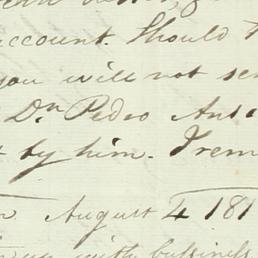 account. Should
you will not se
Dn Pedro Ant
by him. I rem
August 4 181
with bussiness